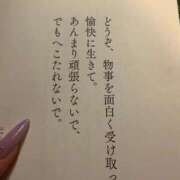 どうぞ、物事を面白く受け取っ
愉快に生きて。
あんまり頑張らないで、
でもへこたれないで。